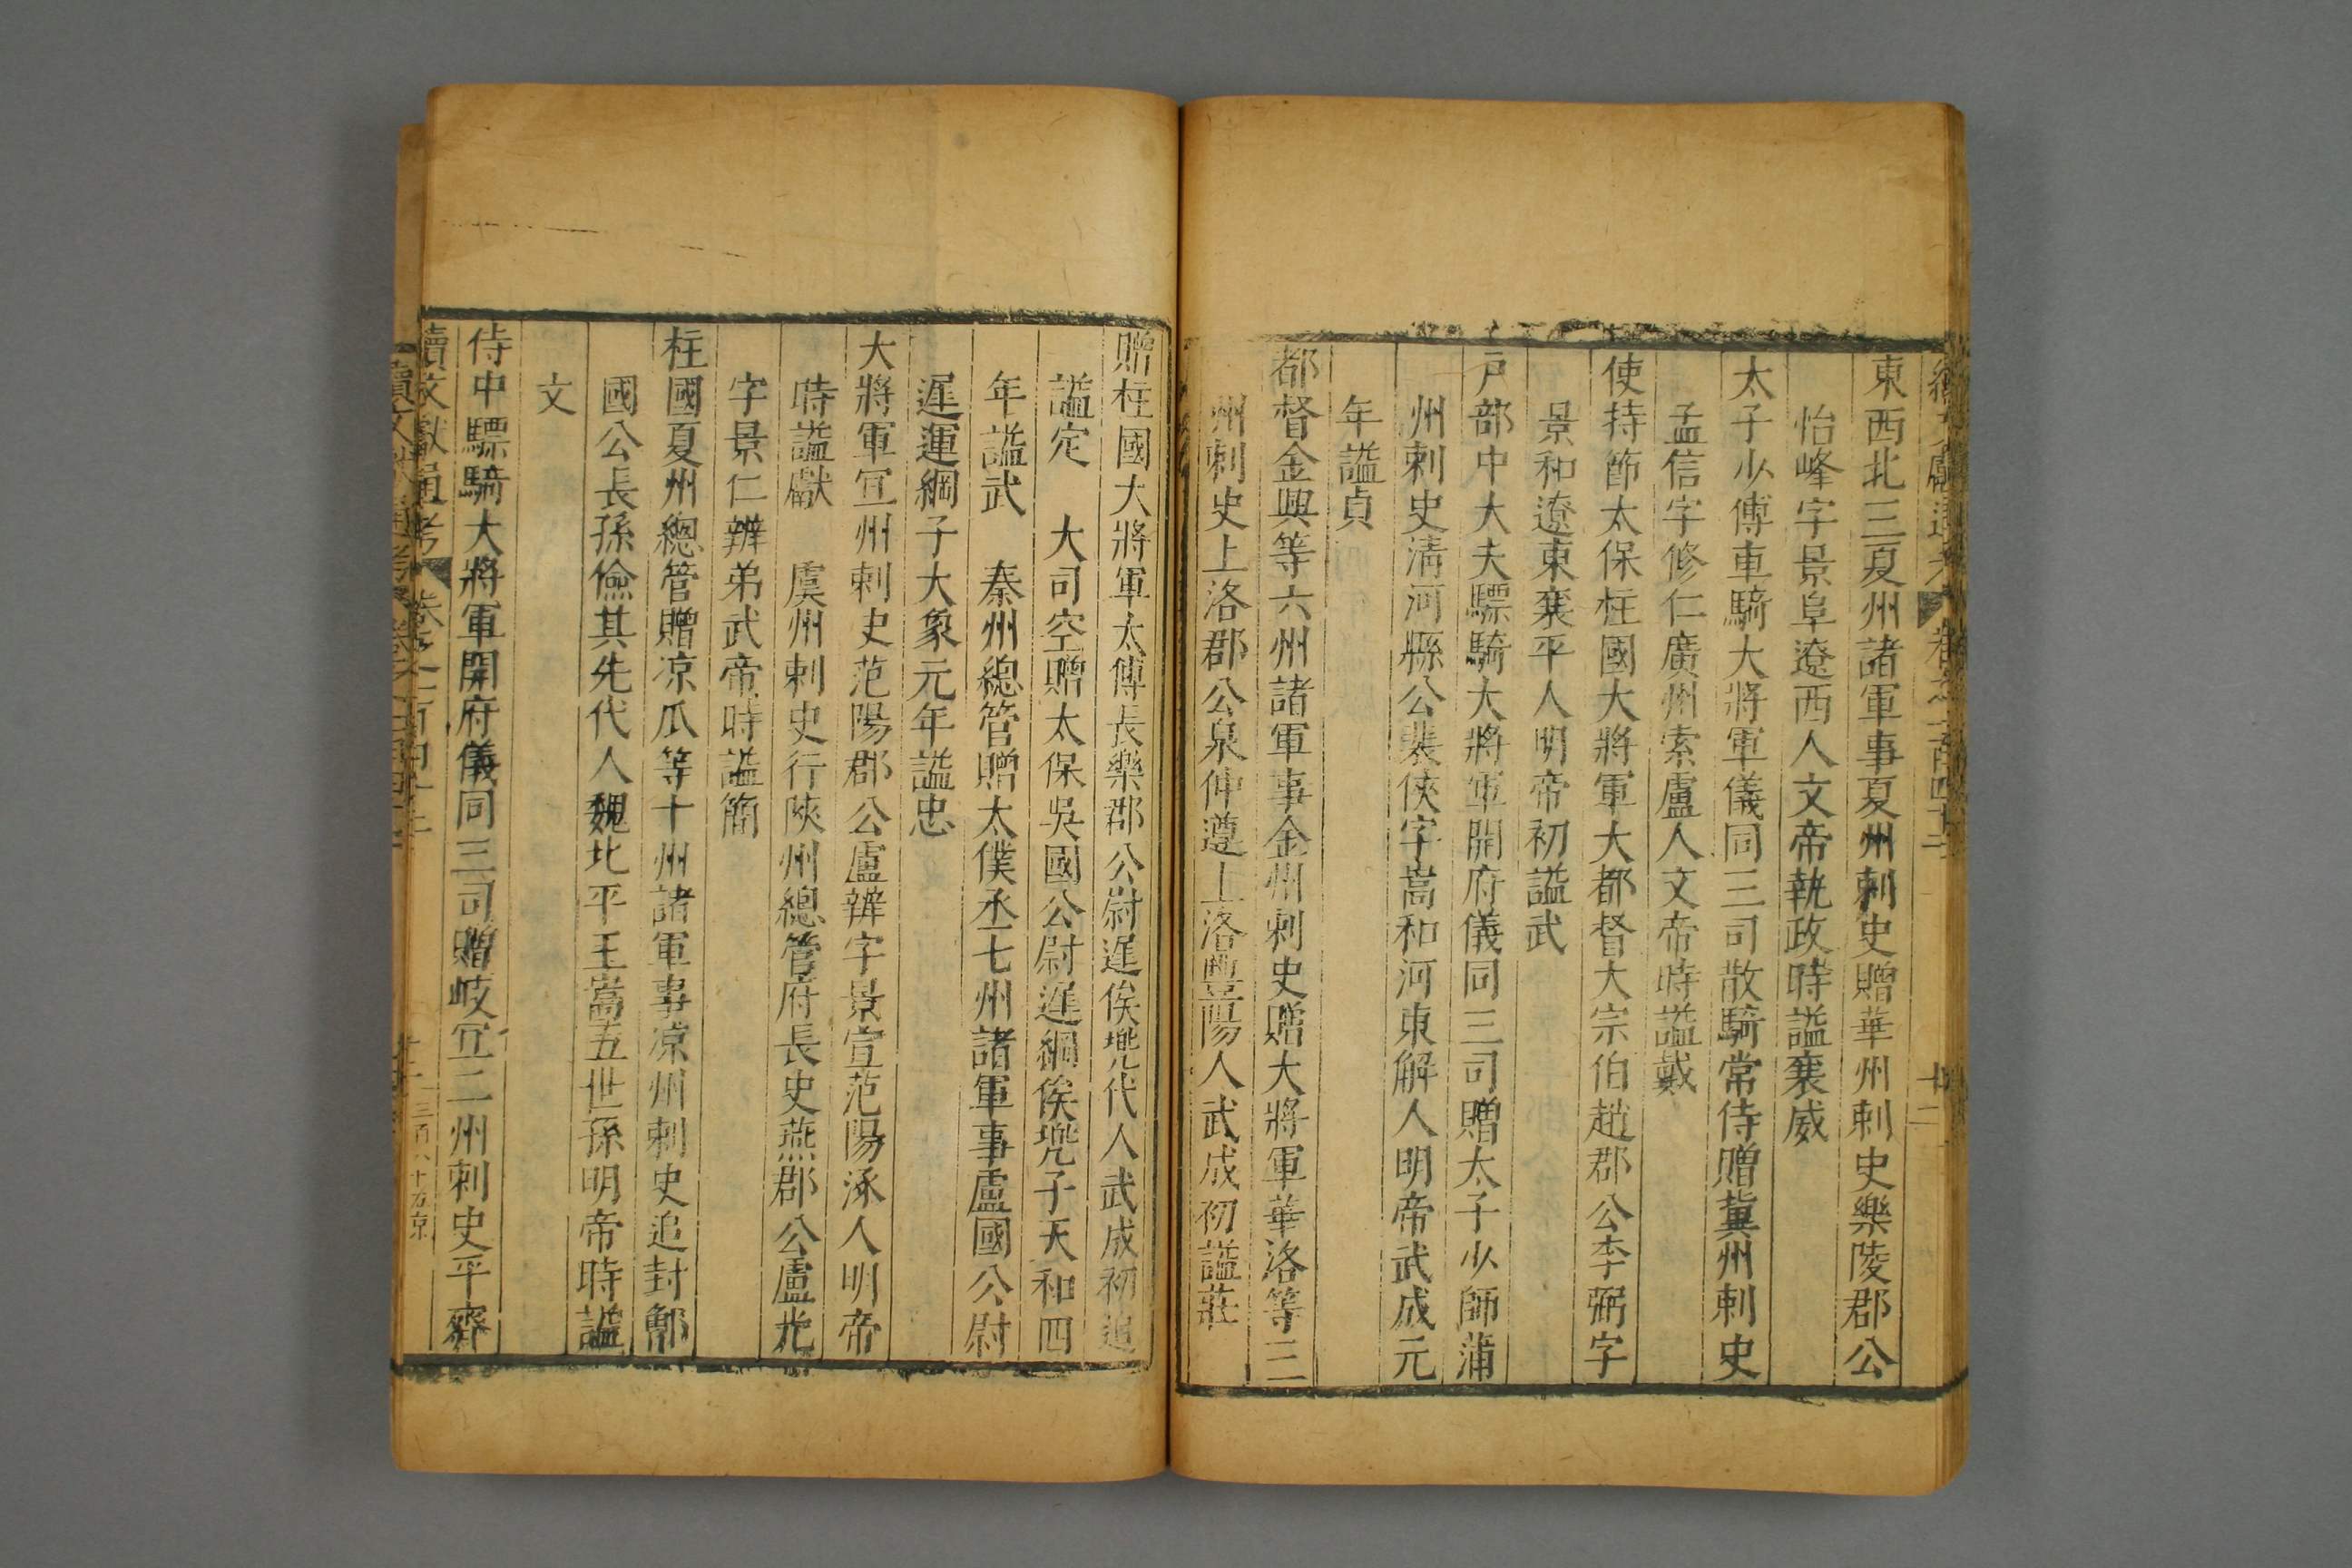 東西北三夏州諸軍事夏州刺史贈華州刺史樂陵郡公
怡峰字景阜遼西人文帝執政時謚襄威
太子少傅車騎大將軍儀同三司散騎常侍贈冀州刺史
孟信字修仁廣州索盧人文帝時謚戴
使持節太保柱國大將軍大都督大宗伯趙郡公李弼字
景和遼東襄平人明帝初謚武
戶部中大夫驃騎大將軍開府儀同三司贈太子少師蒲
州刺史清河縣公裴俠字嵩和河東解人明帝武成元
年謚貞
都督金興等六州諸軍事金州刺史贈大將軍華洛等三
州刺史上洛郡公泉仲遵上洛豐陽人武成初謚莊
贈柱國大將軍太傅長樂郡公尉遲俟兜代人武成初追
謚定　大司空贈太保吳國公尉遲綱俟兜子天和四
年謚武　秦州總管贈太僕丞七州諸軍事盧國公尉
遲運綱子大象元年謚忠
大將軍冝州刺史范陽郡公盧辨字景宣范陽涿人明帝
時謚獻　虞州刺史行陜州總管府長史燕郡公盧光
字景仁辨弟武帝時謚簡
柱國夏州總管贈凉瓜等十州諸軍事凉州刺史追封鄫
國公長孫儉其先代人魏北平王嵩五世孫明帝時謚
文
侍中驃騎大將軍開府儀同三司贈岐冝二州刺史平齊
續文獻通考 卷之一百四十三